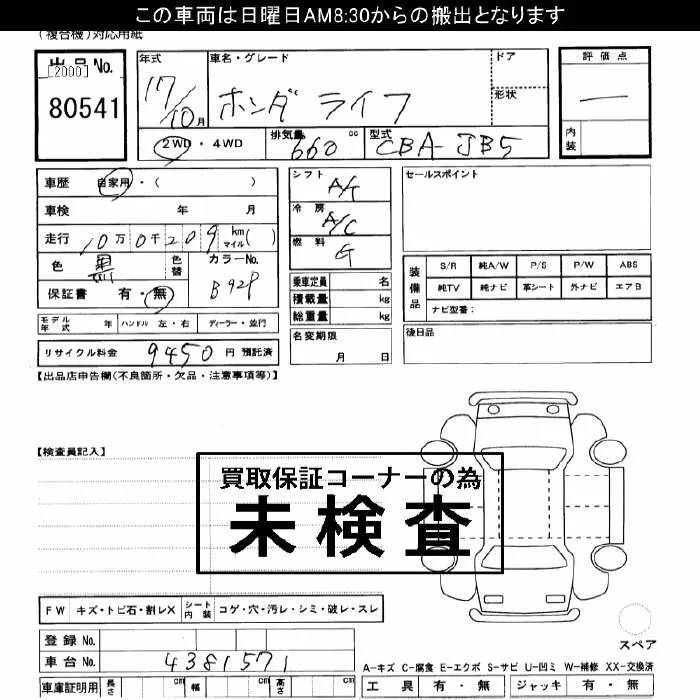 この車両は日曜日AM8:30からの搬出となります
(複合機)対応用紙
出品No.
[2000]
80541
年式
17/10月
車名・グレード
ホンダ ライフ
ドア
形状
2WD・4WD
排気量
660 cc
型式
CBA-JB5
評価点
内装
車歴 自家用・( )
車検 年 月
走行 10万0千209 km マイル( )
色 黒
色替
カラーNo.
B92P
保証書 有・無
シフト
A/T
冷房
A/C
燃料
G
乗車定員 名
積載量 kg
総重量 kg
セールスポイント
装備品
S/R 純A/W P/S P/W ABS
純TV 純ナビ 革シート 外ナビ エアB
ナビ型番:
モデル年式 年 ハンドル 左・右 ディーラー・並行
リサイクル料金 9450 円 預託済
名変期限
月 日
後日品
【出品店申告欄(不良箇所・欠品・注意事項等)】
【検査員記入】
買取保証コーナーの為
未検査
FW キズ・トビ石・割レX シート内装 コゲ・穴・汚レ・シミ・破レ・スレ
登録No.
車台No. 4381571
車庫証明用 長さ cm 幅 cm 高さ cm
スペア
A-キズ C-腐食 E-エクボ S-サビ U-凹ミ W-補修 XX-交換済
工具 有・無 ジャッキ 有・無